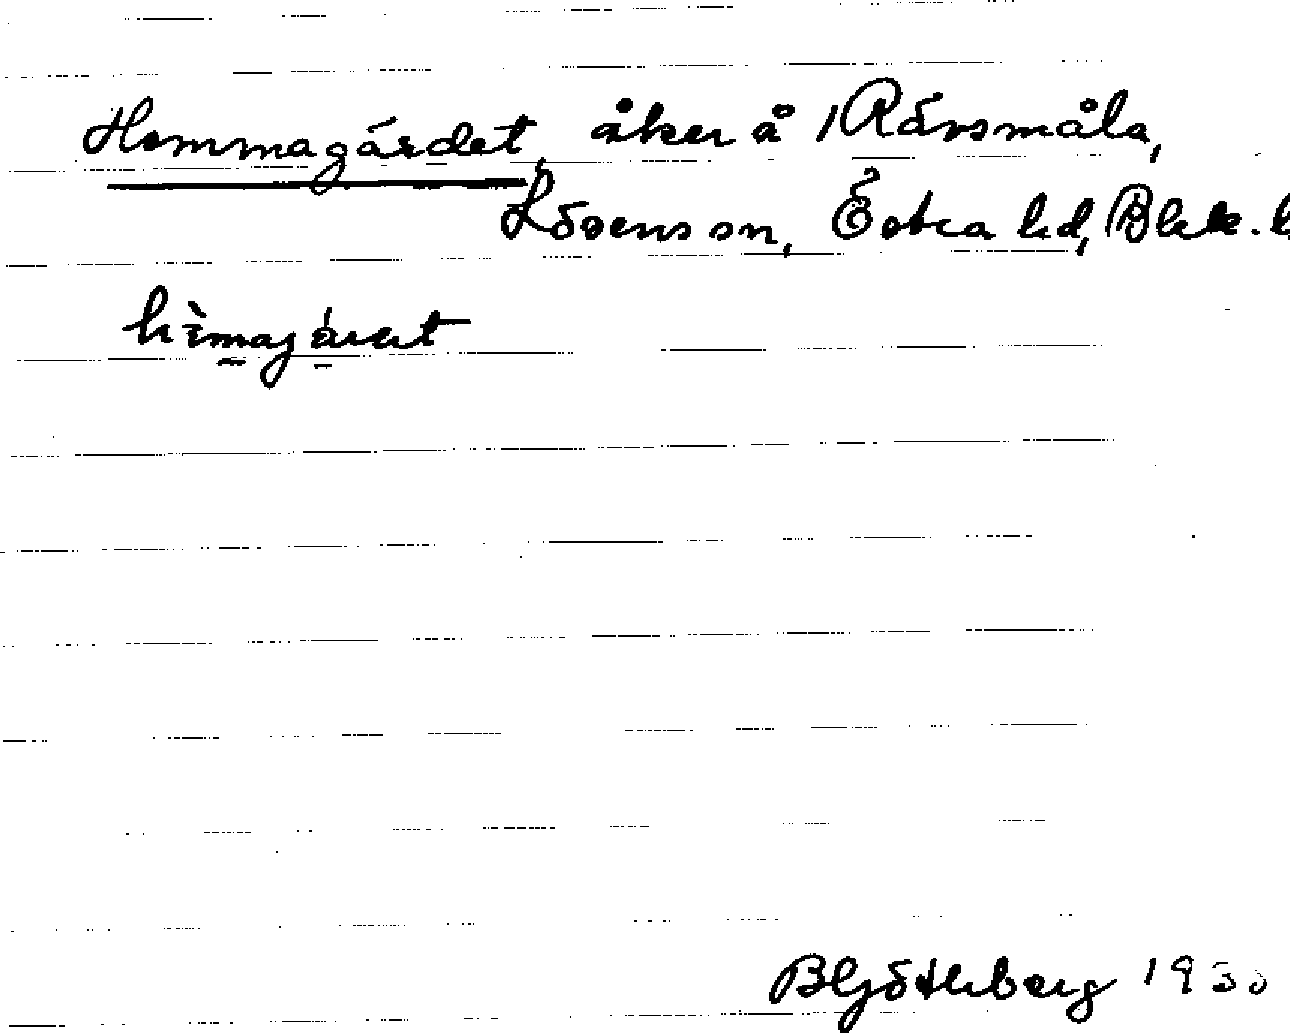 Hemmagärdet, åker å 1 Rävsmåla,
Lösensn, Östra hd, Blek. l
hemagäret
B Götlberg 1930